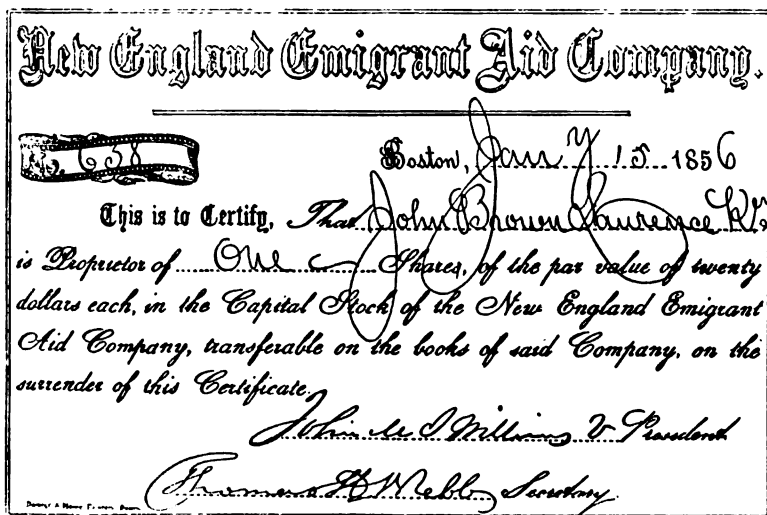 New England Emigrant Aid Company.
No. 638
Boston, Jany 15 1856
This is to Certify, That John Brown Lawrence K.T.
is Proprietor of One Shares, of the par value of twenty
dollars each, in the Capital Stock of the New England Emigrant
Aid Company, transferable on the books of said Company, on the
surrender of this Certificate.
John M S Williams V President
Thomas H Webb Secretary.